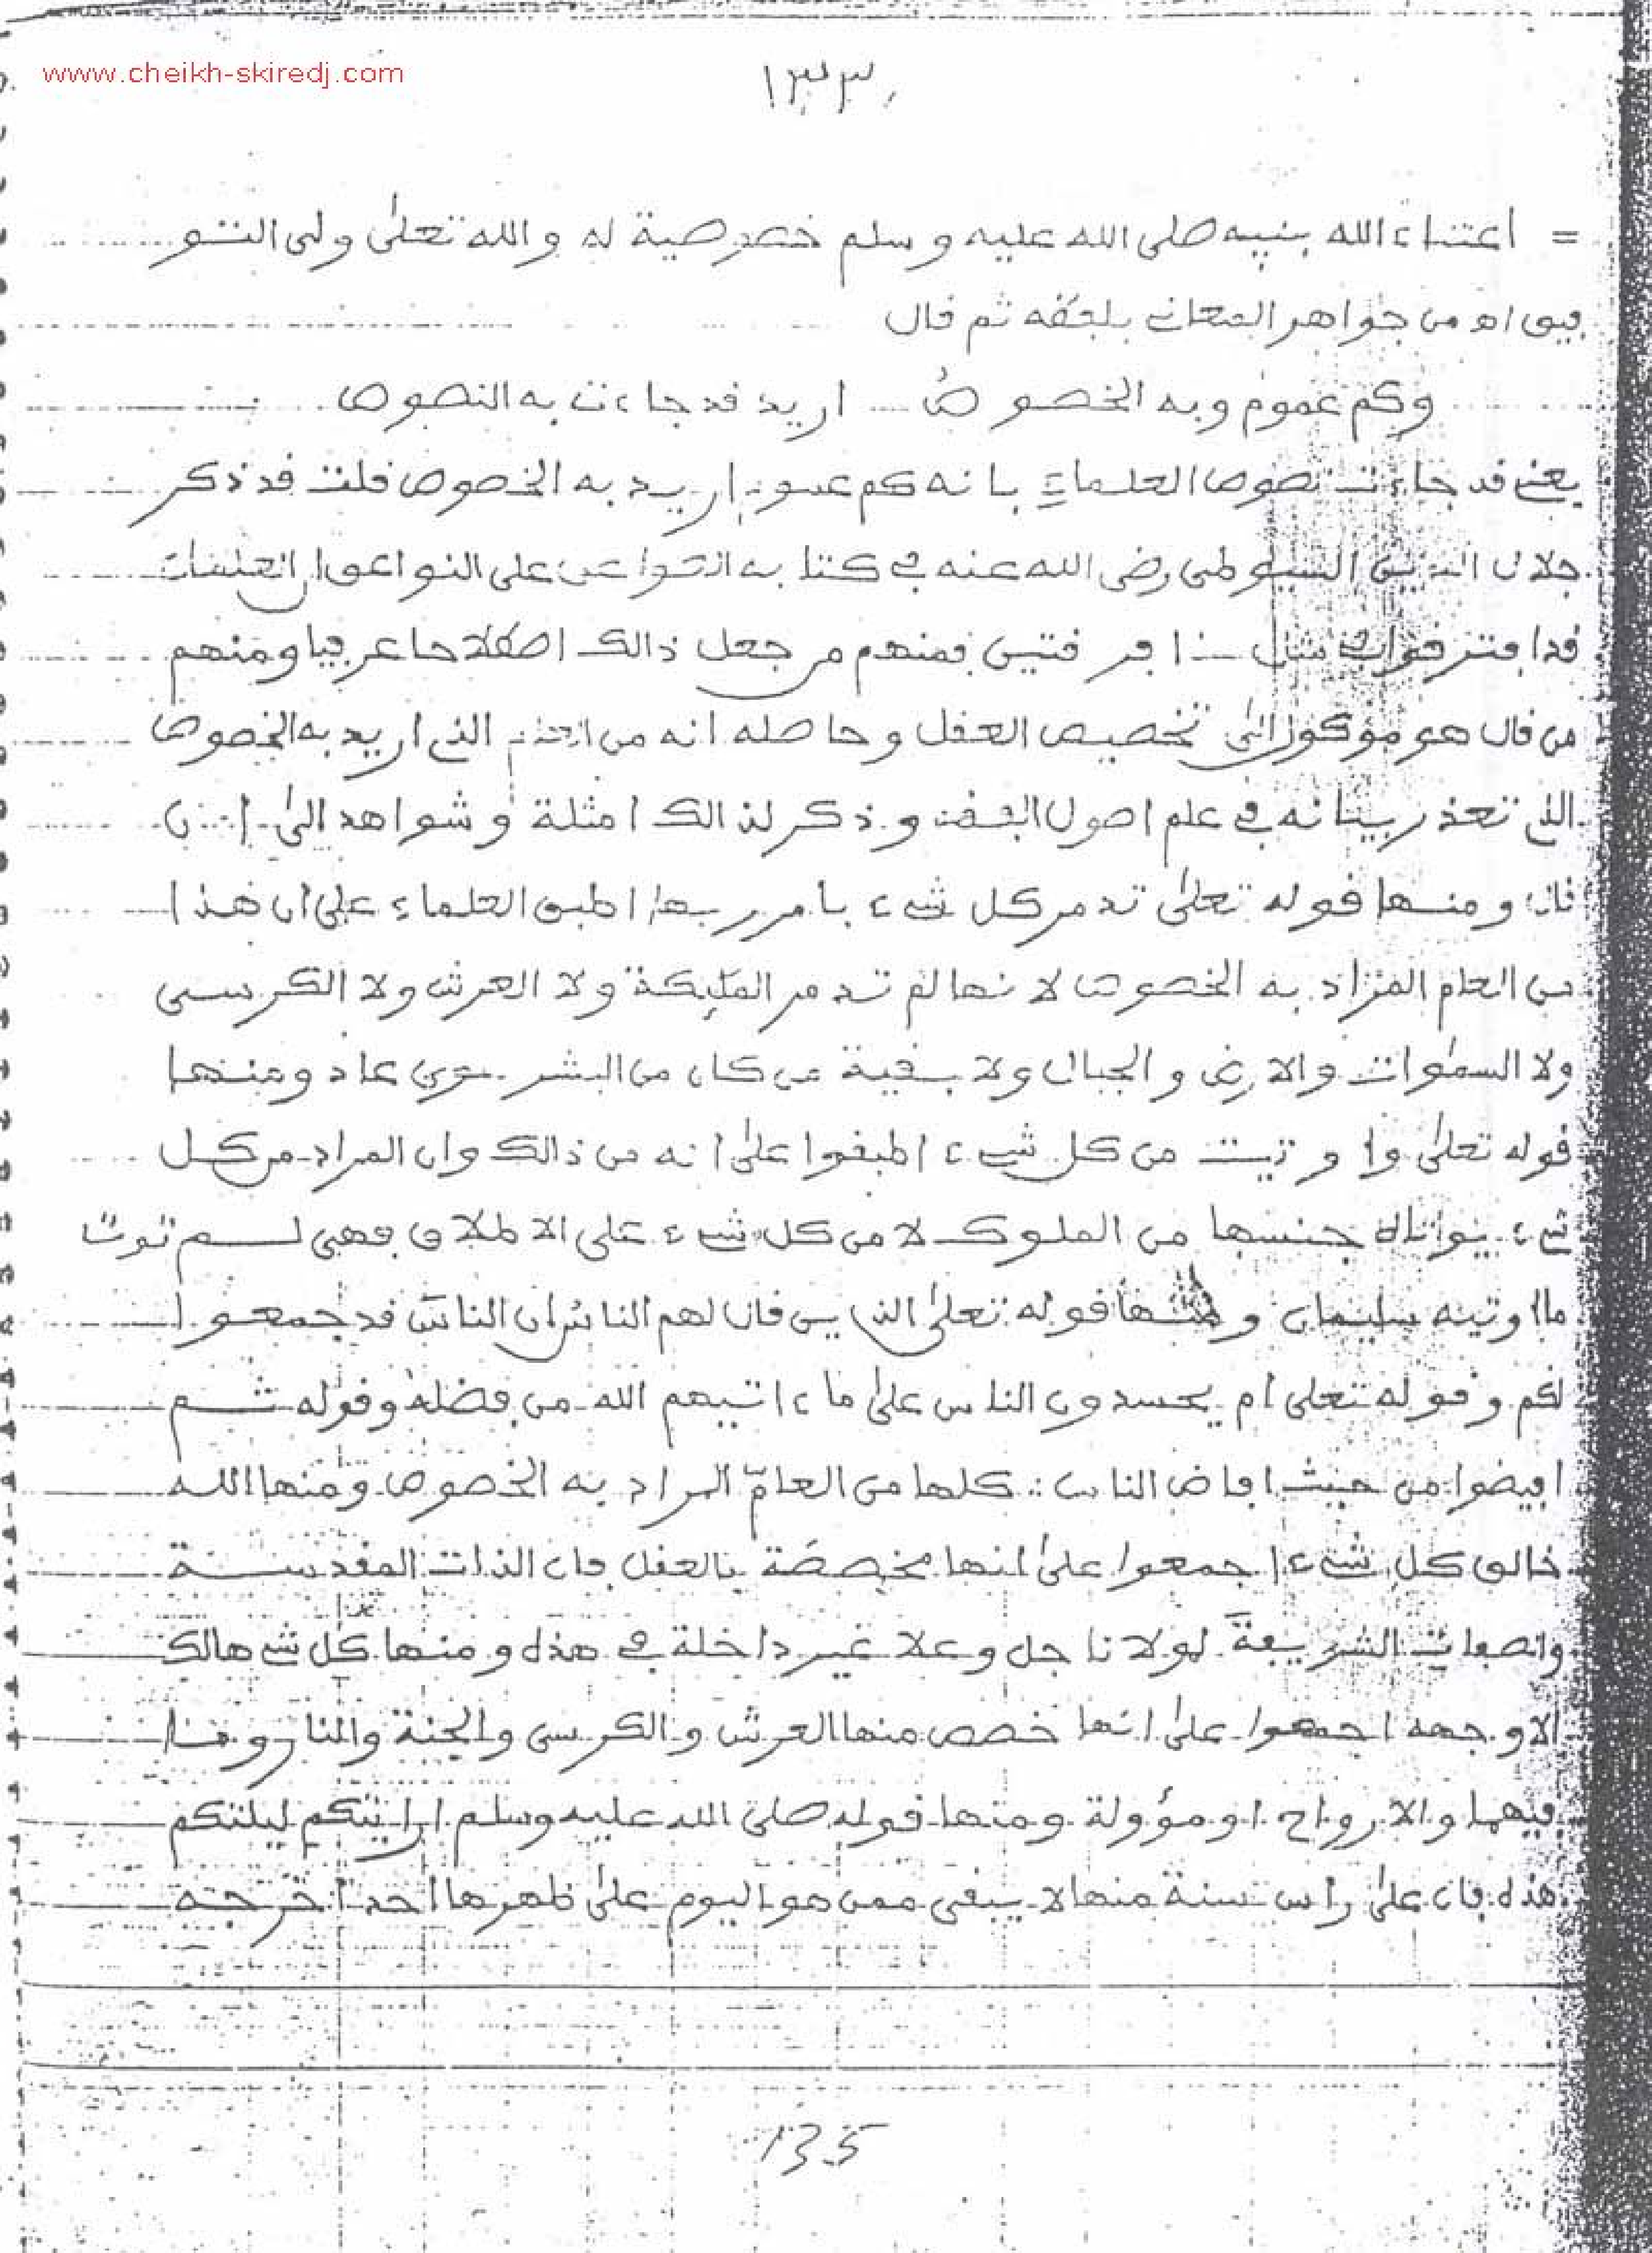 www.cheikh-skiredj.com
١٣٣
= اعتناء الله بنبيه صلى الله عليه وسلم خصوصية له والله تعلى ولى التو
فيق اه من جواهر المعانى بلفظه ثم قال
وكم عموم وبه الخصوص اريد قد جاءت به النصوص
يعنى قد جاءت نصوص العلماء بانه كم عموم اريد به الخصوص قلت قد ذكر
جلال الدين السيوطى رضى الله عنه في كتابه على ان العلماء
قد افترقوا في مثل فرقتين فمنهم من جعل ذالك اصطلاحا عرفيا ومنهم
من قال هو موكول الى تخصيص العقل وحاصله انه من العام الذي اريد به الخصوص
الذي تعذر بيانه في علم اصول الفقه وذكر لذالك امثلة وشواهد الى ان
قال ومنها قوله تعلى تدمر كل شىء بامر ربها اطبق العلماء على ان هذا
من العام المراد به الخصوص لانها لم تدمر الملئكة ولا العرش ولا الكرسى
ولا السموات والارض والجبال ولا بقية من كان من البشر سوى عاد ومنها
قوله تعلى واوتيت من كل شىء اطبقوا على انه من ذالك وان المراد من كل
شىء جنسها من الملوك لا من كل شىء على الاطلاق فهى لم توت
ما اوتيه سليمان ومنها قوله تعلى الذين قال لهم الناس ان الناس قد جمعوا
لكم وقوله تعلى ام يحسدون الناس على ما ءاتيهم الله من فضله وقوله ثم
افيضوا من حيث افاض الناس : كلها من العام المراد به الخصوص ومنها الله
خالق كل شىء اجمعوا على انها مخصصة بالعقل فان الذات المقدسة
والصفات الشريفة لمولانا جل وعلا غير داخلة في هذه ومنها كل شىء هالك
الا وجهه اجمعوا على انها خصص منها العرش والكرسى والجنة والنار وما
فيهما والارواح او مؤولة ومنها قوله صلى الله عليه وسلم ارايتكم ليلتكم
هذه فان على راس سنة منها لا يبقى ممن هو اليوم على ظهرها احد اخرجه
135